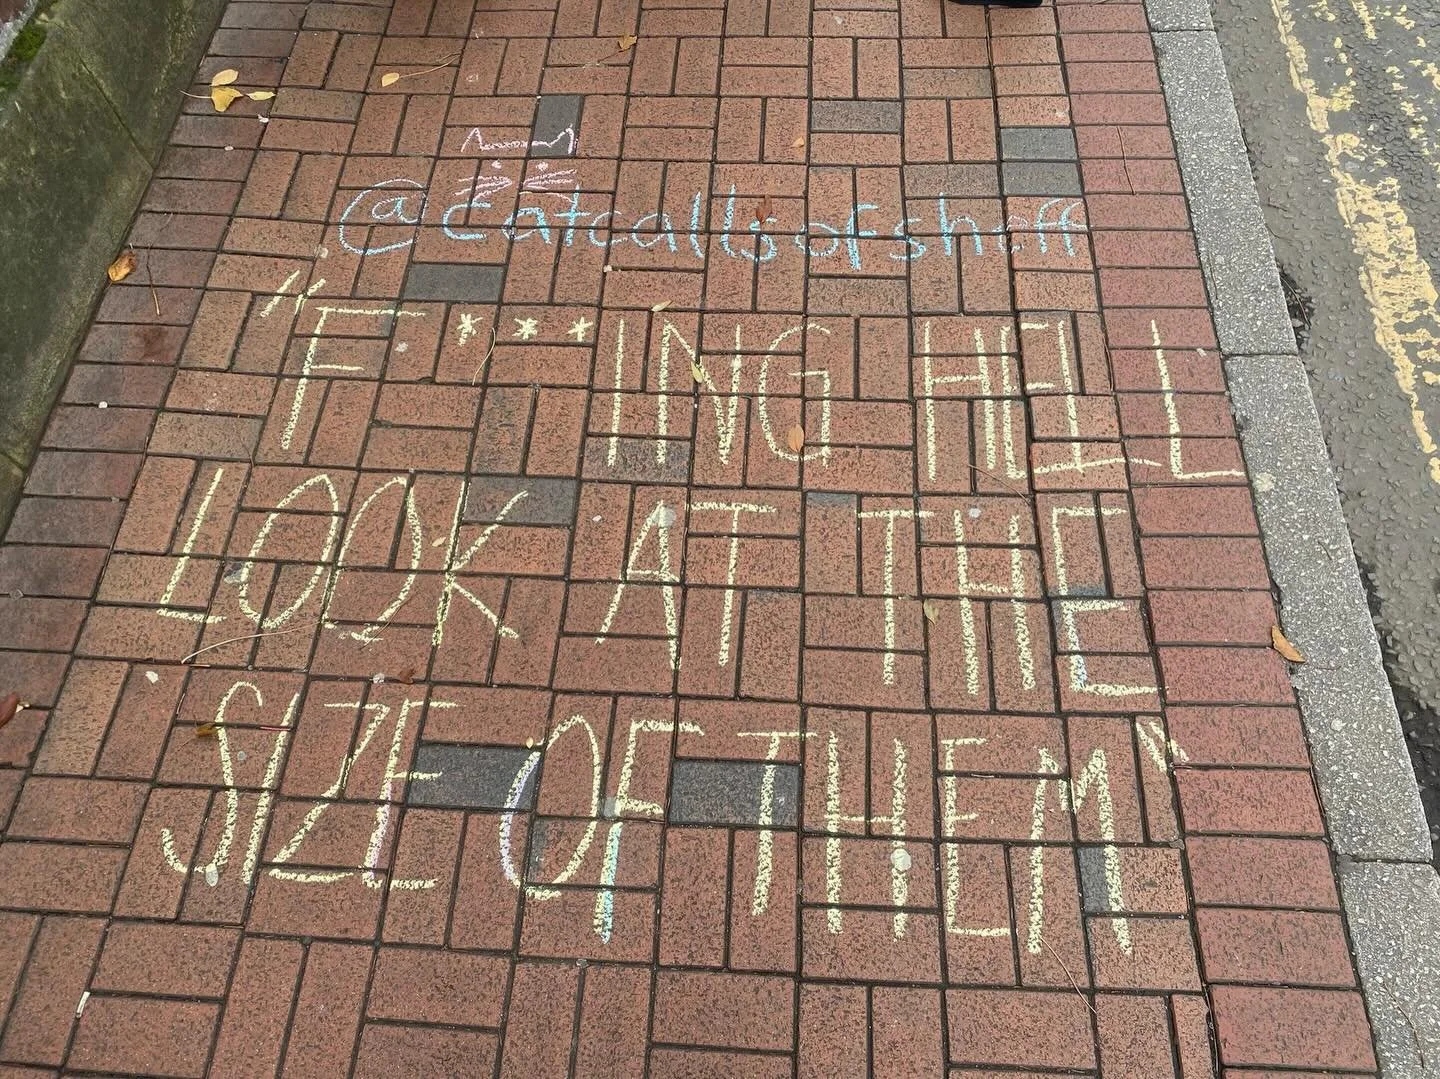 @catcallsofsheff
"F***ING HELL
LOOK AT THE
SIZE OF THEM"